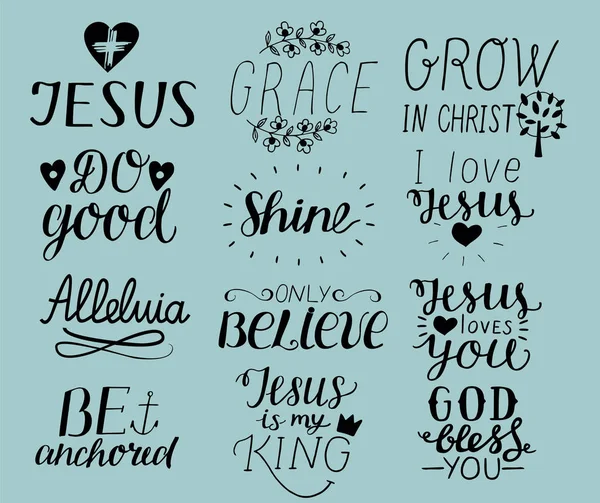 JESUS
GRACE
GROW
IN CHRIST
DO
good
Shine
I love
Jesus
Alleluia
ONLY
BELIEVE
Jesus
LOVES
you
BE
anchored
Jesus
is my
KING
GOD
bless
YOU